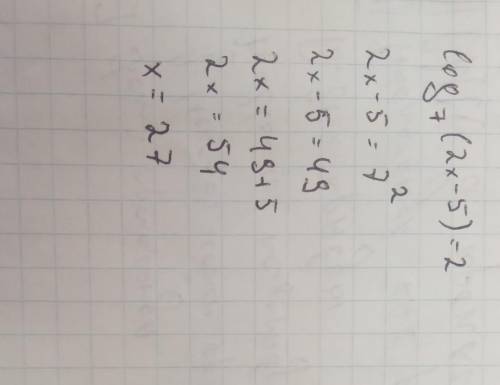 log₇(2x-5)=2
2x-5=7²
2x-5=49
2x=49+5
2x=54
x=27